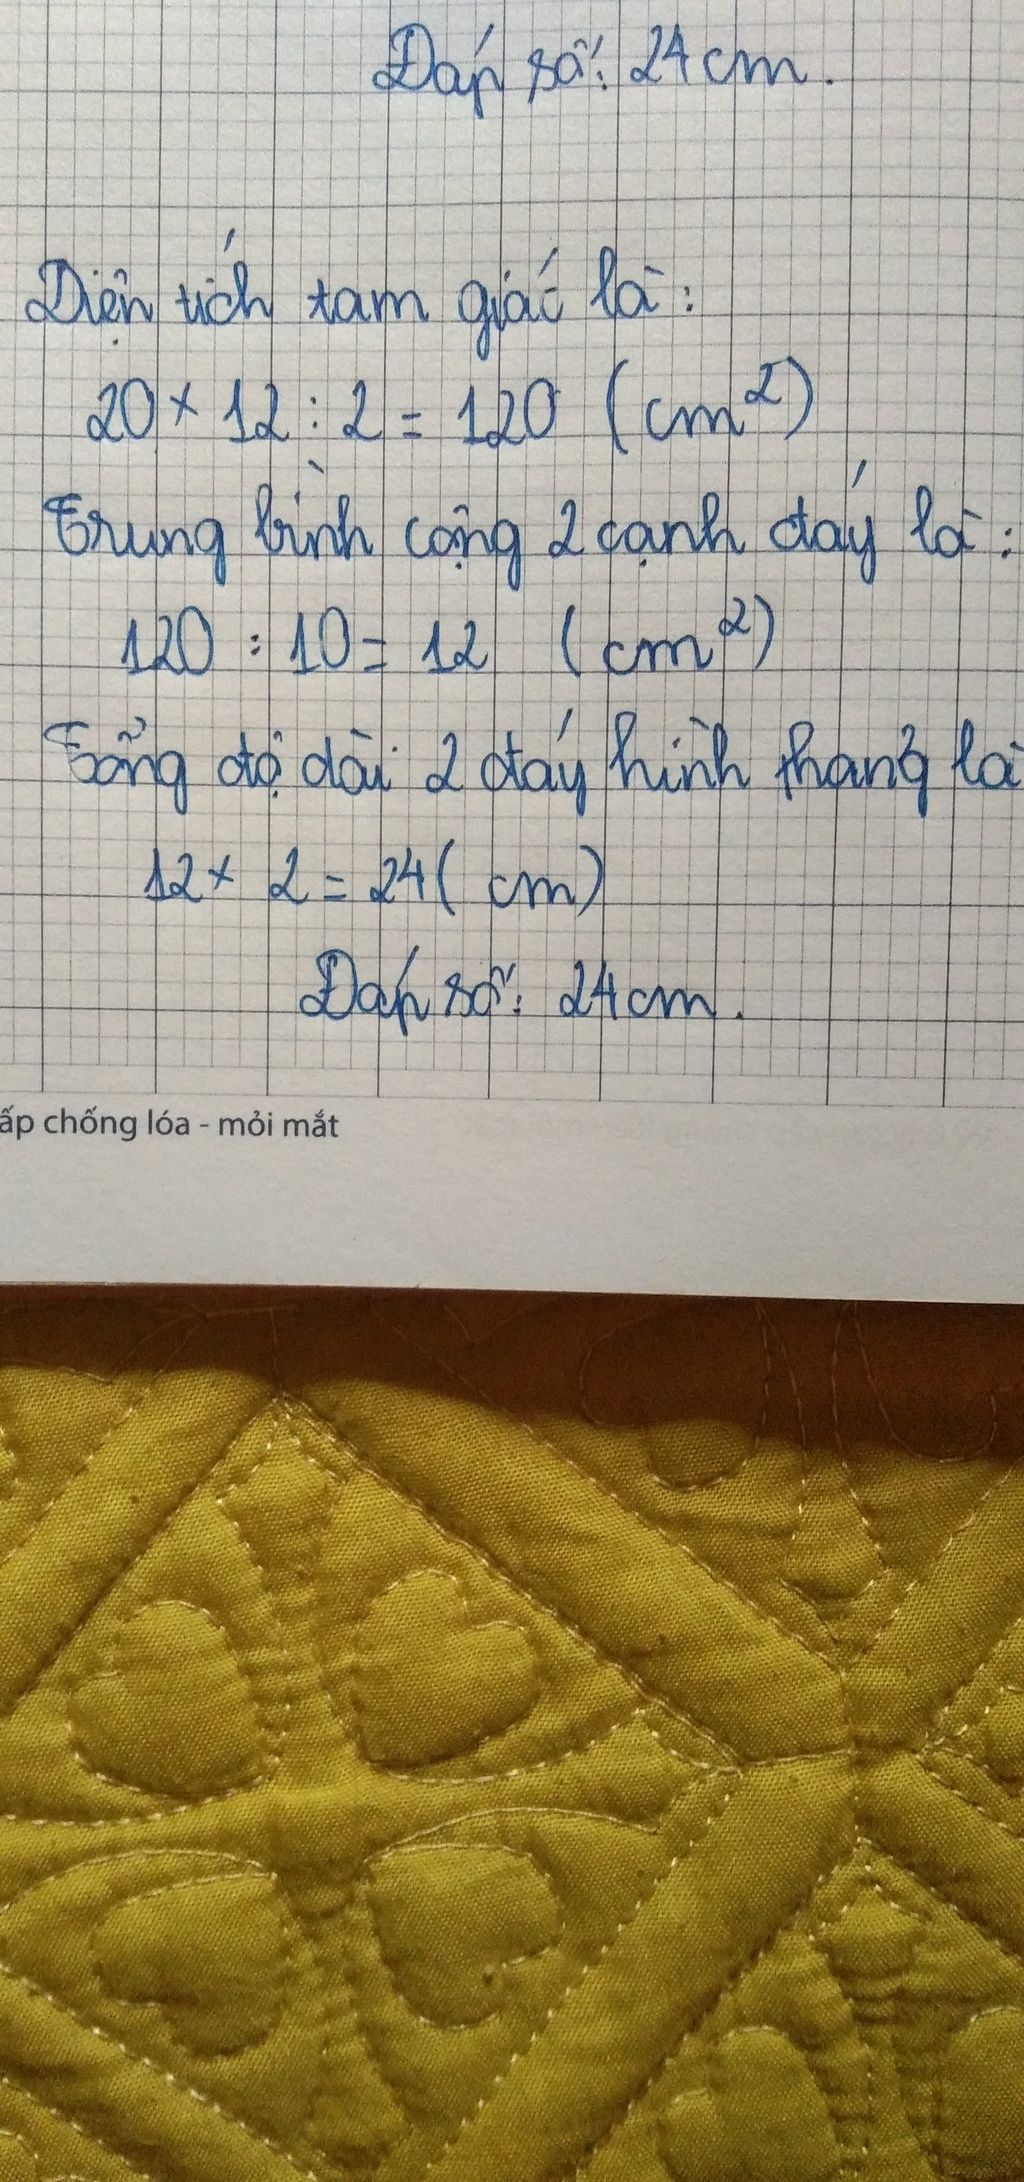 Đáp số: 24cm.
Diện tích tam giác là:
20 × 12 : 2 = 120 (cm²)
Trung bình cộng 2 cạnh đáy là:
120 : 10 = 12 (cm²)
Tổng độ dài 2 đáy hình thang là
12 × 2 = 24 (cm)
Đáp số: 24cm.
ấp chống lóa - mỏi mắt